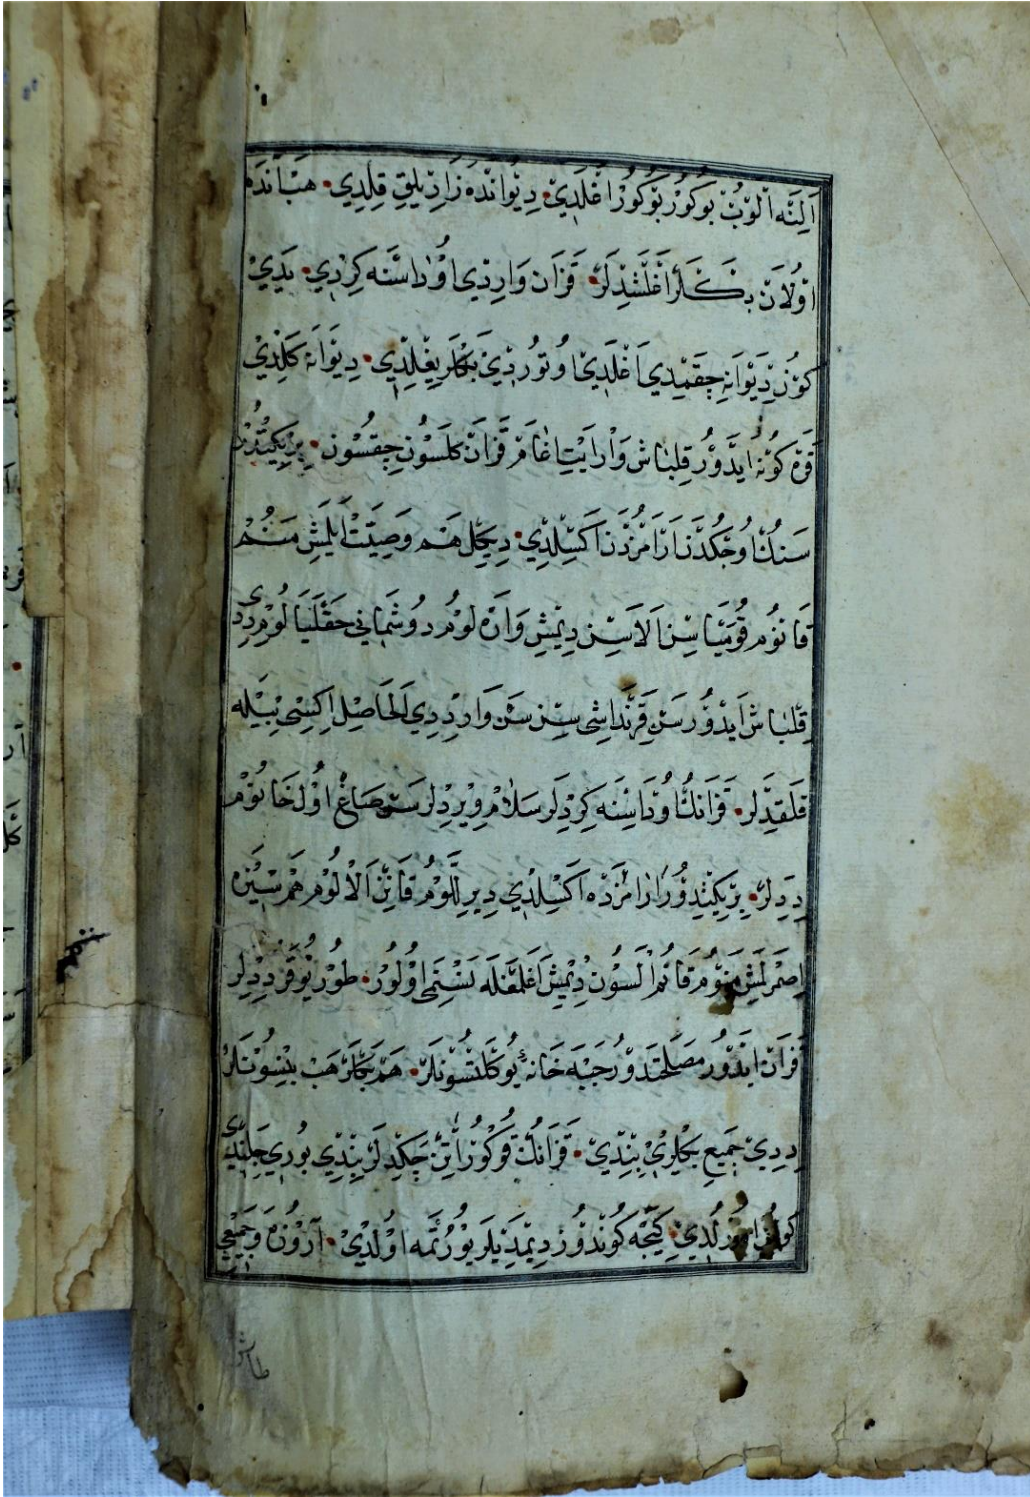 اَلِنَّه اٰلُوبْ بُوكُورْ بُوكُورْ اَغْلَدِيْ دِيوَانْدَه زَارِيلِقْ قِلِدِي هبْ اَنْدَه
اوُلَانْ بكْلَرْ اَغْلَشْدِلَرْ قَزَان وَارِدْي اوُداسْنَه كِرْدِي يَدِيْ
كوُنْ دِيَوانَه چِقمَدِي اَغْلَدِيْ اوُتوُرْدِيْ بَكْلَر يِغِلْدِيْ دِيوَانَه كَلْدِيْ
قَرَه كوُنَه اَيْدَوُرْ قِلبَاش وَاْر اَيْت اغَام قَزَانْ كَلسوُنْ چِقسوُن بِرْ يِكِيْتُدْ
سَنُكْ اوُجُكْدَنْ اَرَامُزدَن اَكْسِلدِيْ دِيچِل هَم وَصِيَّتْ اَيْلَمِش مَنُمْ
قَانوُم قوُمَيَاسِنْ اَلَاسِنْ دِيمْشِ وَارَه لوُم دوُشَمانِي حَقْلَيَا لوُم دِدِى
قِلبَاش اَيْدوُر سَنْ قَرنْدَاشِى سِنْ سَنْ وَار دِدِي اَلْحَاصِل اِكِسِى بِيْلَه
قَلَقدِلر قَزَانُكْ اوُدَاسِنَه كِرْدِلَر سَلامْ ويْرِدِلر سَنْ صَاغْ اوُل خَانوُمْ
دِدِلَرْ بِرْ يِكِيْتدوُرْ اَرَامُزْدَه اَكْسِلْدِي دِيرِلَّوُم قَانِنْ اَلَالوُمْ هَم سِيْزَه
اِصْمَرلَمَشِ مَنوُم قَانُمْ اَلسوُن دِيمْشِ اَغلَمَقلَه نَسْنَمى اوُلوُرْ طوُر يوُقرُ دِدِلر
قَزانْ اَيْدَوُرْ مَصْلَحَتدوُرْ جَبَه خَانَه يوُكلَتسوُنلَرْ هَم بَكْلَرْ هَبْ بِنْسوُنلَرْ
دِدِيْ جَمِيع بَكْلَرِيْ بِنِدِّيْ قَزَانُكْ قوُكوُرْ اٰتِنْ چَكْدِ لَرْ بِنْدِيْ بوُرِي چَلِنْدِى
كوُسْ اوُرُلْدِيْ كِيجَّه كوُنْدوُزْ دِيمْدِيلَر يوُرُتمَه اوُلْدِيْ اَروُزَه وَجَمِيْعِ
طاش